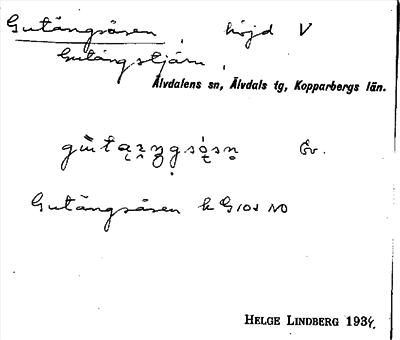 Gutångsåsen, höjd V
Gutångstjärn,
Älvdalens sn, Älvdals tg, Kopparbergs län.
Öv.
Gutångsåsen k G 10d NO
HELGE LINDBERG 1934.